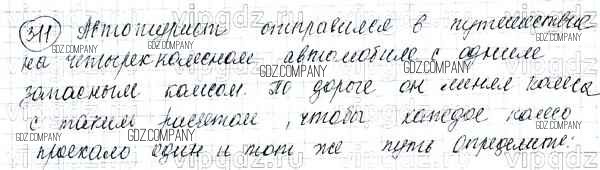 311 Автотурист отправился в путешествие
на четырехколесном автомобиле с одним
запасным колесом. По дороге он менял колеса
с таким расчетом, чтобы каждое колесо
проехало один и тот же путь Определите:
GDZ.COMPANY
vipgdz.com